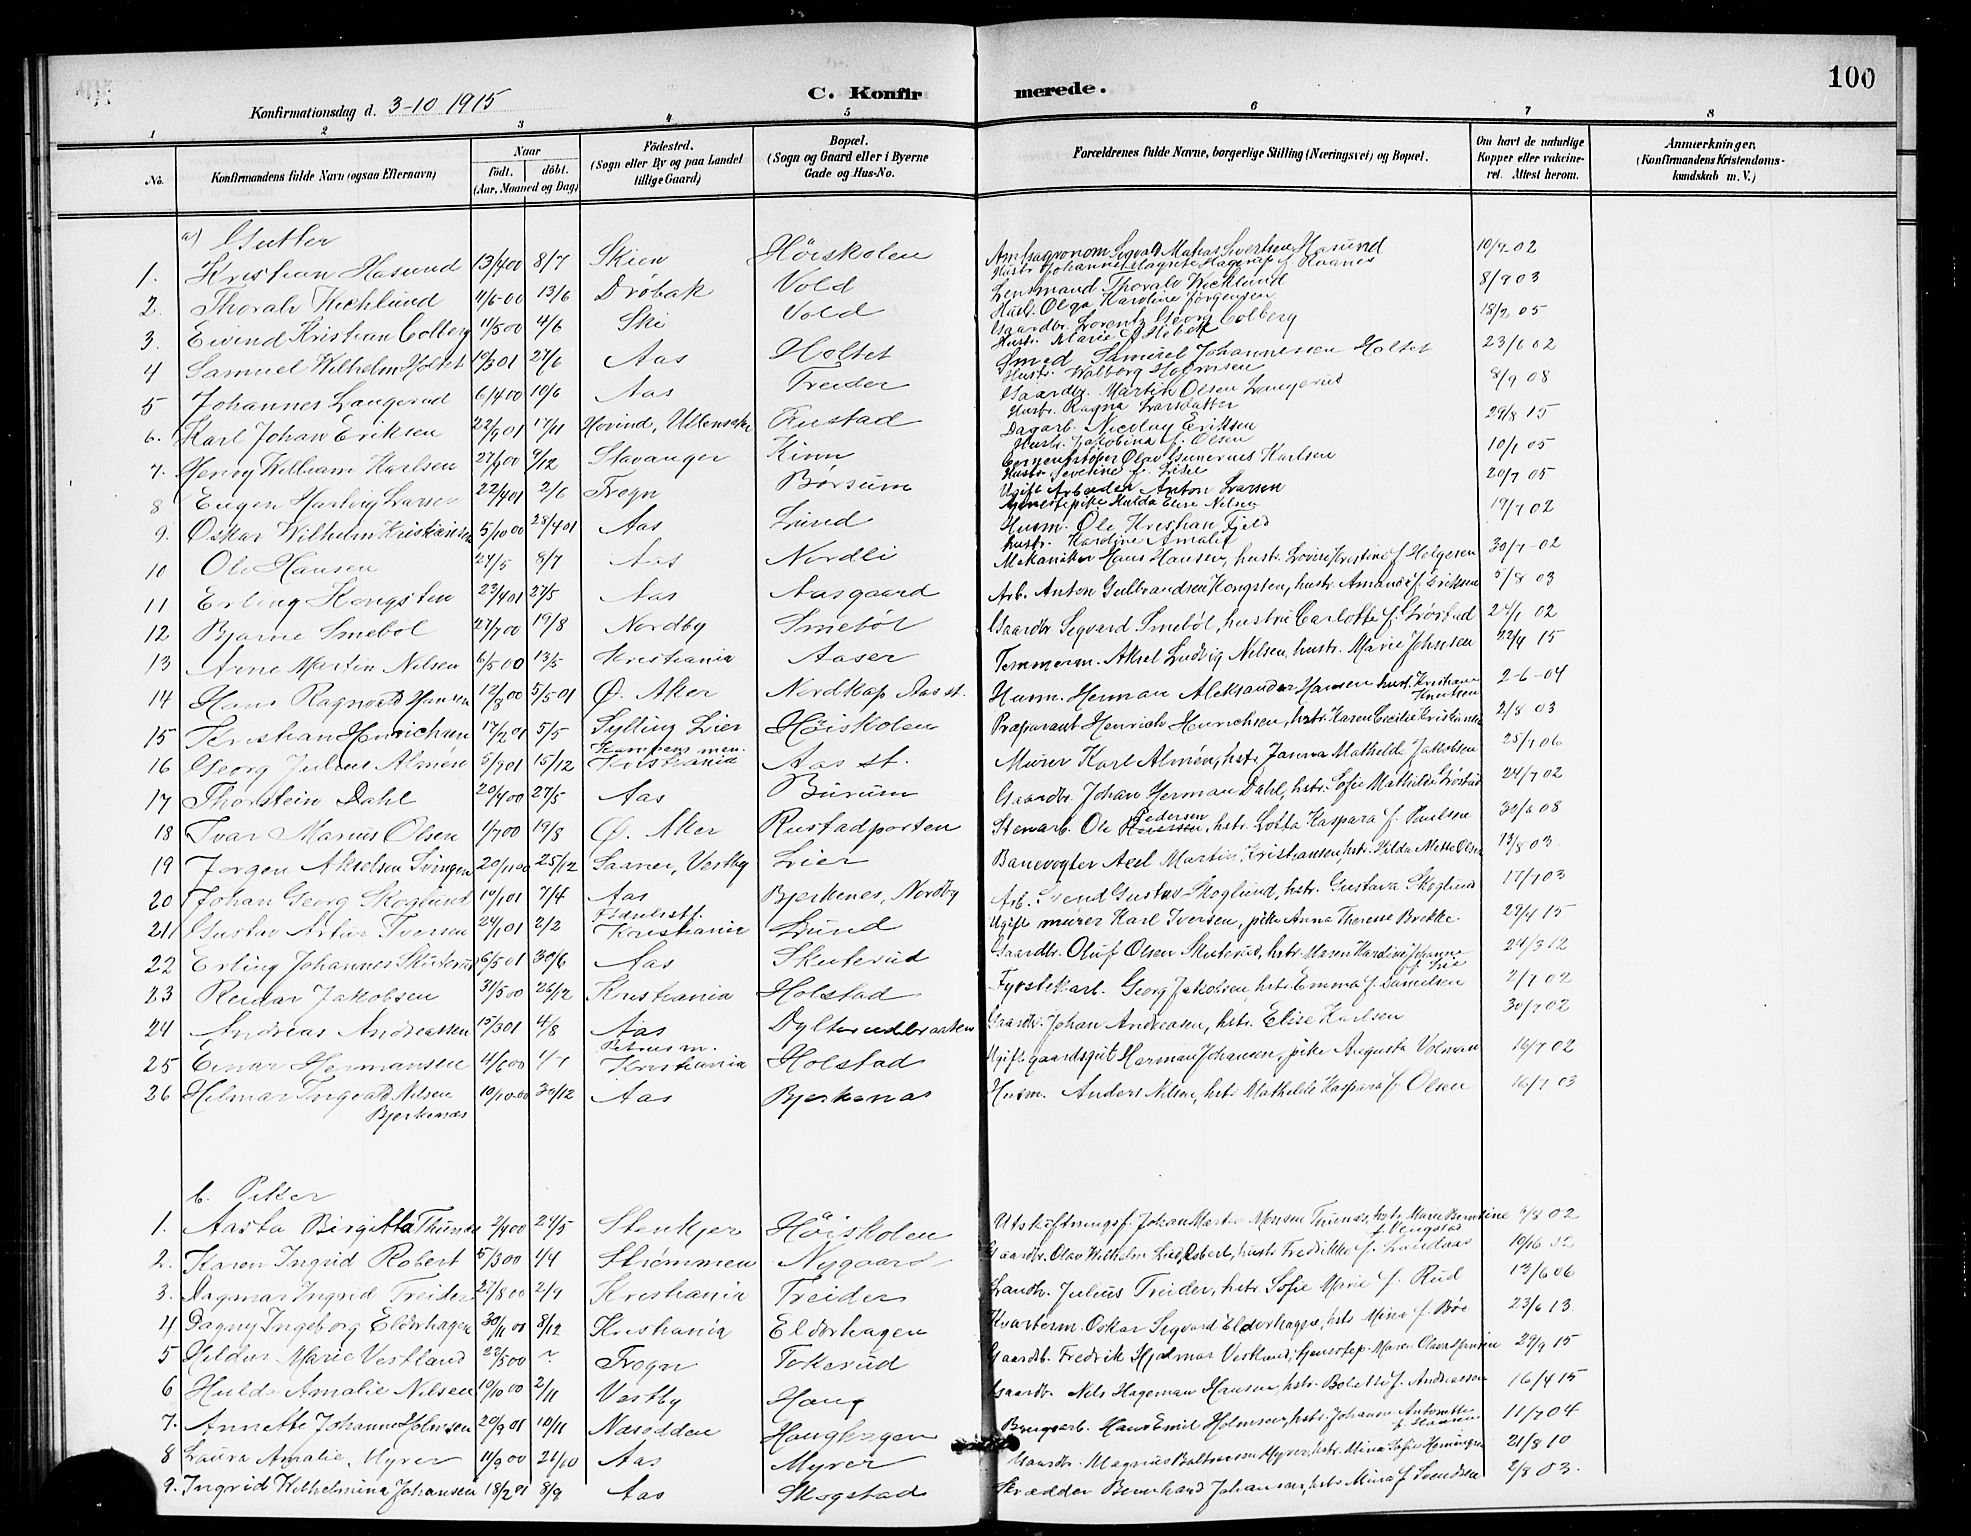 100
C. Konfirmerede.
Konfirmationsdag d. 3-10 1915
1 2 3 4 5 6 7 8
No. Konfirmandens fulde Navn (ogsaa Efternavn) Naar født. døbt. (Aar, Maaned og Dag) Fødested. (Sogn eller By og paa Landet tillige Gaard) Bopæl. (Sogn og Gaard eller i Byerne Gade og Hus-No. Forældrenes fulde Navne, borgerlige Stilling (Næringsvei) og Bopæl. Om havt de naturlige Kopper eller vakcineret. Attest herom. Anmærkninger. (Konfirmandens Kristendomskundskab m. V.)
a) Gutter
1. Kristian Hasund 13/4 00 8/7 Skien Høiskolen Amtsagronom Sigvald Mathias Sivertsen Hasund 10/9 02
2. Thoralv Kichlund 4/6-00 13/6 Drøbak Vold Lensmand Thoralv Kichlund Hust. Olga Karoline Jørgensen 8/9 03
3. Eivind Kristian Colberg 11/5 00 4/6 Ski Vold Gaardbr. Lorentz Georg Colberg 18/9 05
4 Samuel Wilhelm Holtet 10/3 01 27/6 Aas Holtet Smed Samuel Johannessen Holtet Hustr. Walborg 23/6 02
5 Johannes Langerud 6/4 00 10/6 Aas Treider Gaardbr. Martin Olsen Langerud Hustr. Ragna Larsdatter 8/9 08
6. Karl Johan Eriksen 22/9 01 17/11 Hovind, Ullensaker Rustad Dagarb. Nicolay Eriksen Hustr. Jakobine f. Olsen 29/8 15
7. Henry William Karlsen 27/9 00 9/12 Stavanger Kinn Olav Gunerius Karlsen 10/1 05
8 Eugen Hartvig Larsen 22/4 01 2/6 Frogn Børsum Ugift Arbeider Anton Larsen tjenestepike Hulda Elise Nilsen 20/7 05
9. Oskar Wilhelm Kristiansen 5/10 00 28/4 01 Aas Lund Husm. Ole Kristian Fjeld hustr. Karoline Amalie 19/7 02
10 Ole Hansen 24/5 8/7 Aas Nordli Mekaniker Hans Hansen, hustr. Lovise Kristine f. Helgesen 30/7-02
11 Erling Kongsten 23/4 01 27/5 Aas Aasgaard Arb. Anton Gulbrandsen Kongsten, hustr. Amanda f. Eriksen 5/8 03
12 Bjarne Smebøl 27/7 00 19/8 Nordby Smebøl Gaardbr. Sigvard Smebøl, hustru Carlotte f. Grøstad 24/1 02
13 Arne Martin Nilsen 6/5 00 13/5 Kristiania Aaser Tømmerm. Aksel Ludvig Nilsen, hustr. Marie Johnsen 22/9 15
14 Hans Ragnvald Hansen 12/8 00 5/5 01 Ø. Aker Nordkap Aas st. Husm. Herman Aleksander Hansen hust. Kristiane Knutsen 2-6-04
15 Kristian Henrichsen 17/2 01 5/5 Sylling Lier Høiskolen Præparant Henrich Henrichsen, hstr. Karen Cecilie Kristiansen 2/8 03
16 Georg Julius Almén 5/9 01 15/12 Kampens men. Kristiania Aas st. Murer Karl Almén, hstr. Janna Mathilde Jakobsen 25/7 06
17 Thorstein Dahl 20/4 00 27/5 Aas Burum Gaardbr. Johan Herman Dahl, hstr. Sofie Mathilde Grøstad 24/7 02
18 Ivar Marius Olsen 1/7 00 19/8 Ø. Aker Rustadporten Stenarb. Ole Pedersen, hstr. Lotta Kaspara f. Paulsen 30/6 08
19 Jørgen Akselsen Svingen 20/11 00 25/12 Saaner, Vestby Lier Banevogter Axel Martin Kristiansen, hstr. Hilda Mette Olsen 13/8 03.
20 Johan Georg Skoglund 10/1 01 7/4 Aas Bjerkenes, Nordby Arb. Svend Gustav Skoglund, hstr. Gustava Skoglund 17/7 03
21 Gustav Artur Iversen 24/1 01 2/2 Kristiania Lund Ugift murer Karl Iversen, pike Anna Therese Brekke 29/4 15
22 Erling Johannes Skuterud 6/5 01 30/6 Aas Skuterud Gaardbr. Oluf Olsen Skuterud, hstr. Maren Kardine Johanne f. Lie 24/3 12
23 Reidar Jakobsen 31/5 00 26/12 Kristiania Holstad Fyrstikarb. Georg Jakobsen hstr. Emma f. Danielsen 2/7 02
24 Andreas Andreassen 15/3 01 4/8 Aas Dyltersudbraaten Gaardbr. Johan Andreasen, hstr. Elise Karlsen 30/7 02
25 Einar Hermansen 4/6 00 1/7 Petrus m. Kristiania Holstad Ugift gaardsgut Herman Johansen, pike Augusta Volman 16/7 02
26 Hilmar Ingvald Nilsen Bjerkenæs 10/10 00 30/12 Aas Bjerkenas Husm. Anders Nilsen, hstr. Mathilde Kaspara f. Olsen 16/7 03
b. Piker
1. Aasta Birgitta Thunæs 2/4 00 24/5 Stenkjer Høiskolen Utskiftningsf. Johan Martin Monsen Thunæs, hstr. Marie Berntine f. Vengstad 6/8 02
2. Karen Ingrid Robert 5/3 00 4/4 Strømmen Nygaard Gaardbr. Olav Wilhelm Robert, hustr. Fredrikke f. Landaas
3. Dagmar Ingrid Treider 27/8 00 2/9 Kristiania Treider Landh. Julius Treider, hstr. Sofie Marie f. Rud 13/6 06
4 Dagny Ingeborg Eldorhagen 30/11 01 8/12 Kristiania Eldorhagen Kvarterm. Oskar Sigvard Eldorhagen, hstr. Mina f. Bøe 23/6 13.
5 Hildur Marie Vestland 22/5 00 ~ Frogn Tokerud Gaardb. Fredrik Hjalmar Vestland, tjenestep. Maren Olava Hansen 29/9 15
6 Huld Amalie Nilsen 10/10 00 2/11 Vestby Haug Gaardbr. Nils Hageman Hansen, hstr. Bolette f. Andreassen 16/4 15
7. Annette Johanne Holmsen 20/9 01 10/11 Næsodden Haughagen Brugsarb. Hans Emil Holmsen, hstr. Johanne Antonette f. Hansen 11/7 04
8 Laura Amalie Myrer 11/9 00 21/10 Aas Myrer Gaardbr. Magnus Baltersen Myrer, hstr. Mina Sofie Henningsen 21/8 10
9. Ingrid Vilhelmina Johansen 18/2 01 8/9 Aas Skogstad Skrædder Bernhard Johansen, hstr. Mina f. Svendsen 2/8 03.